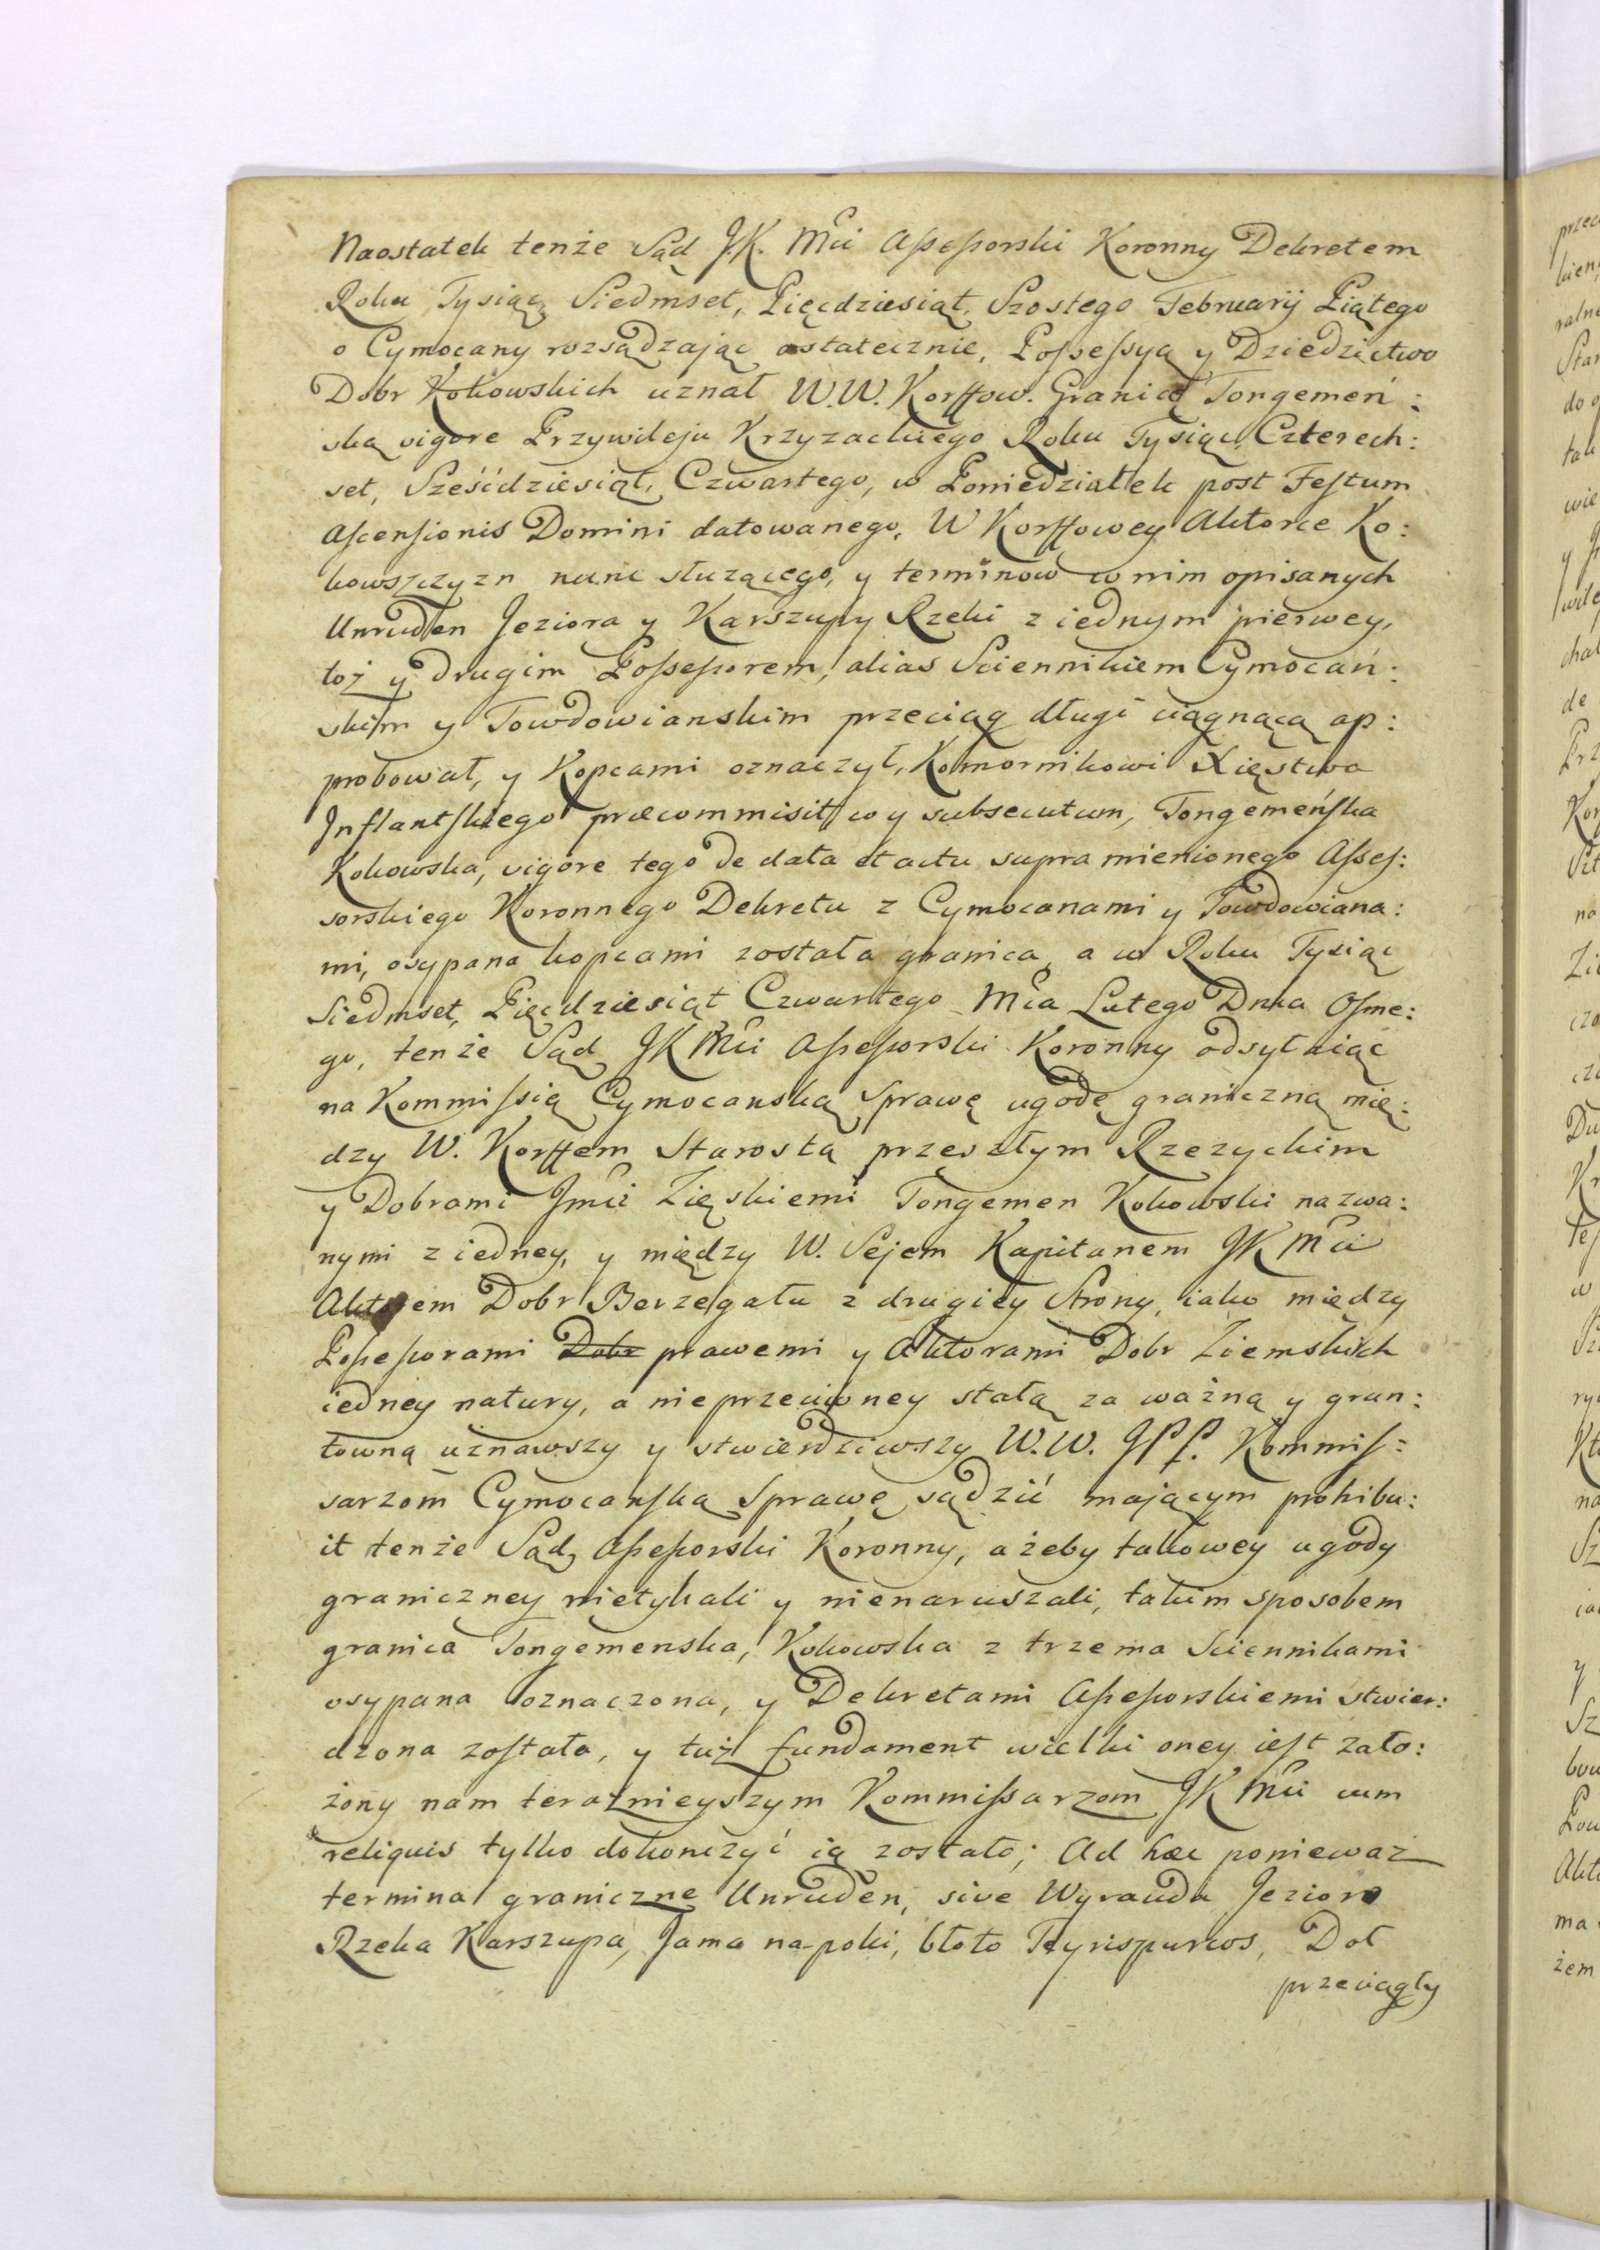 Naostatek tenże Sąd J.K. Mci Assessorski Koronny Dekretem
Roku Tysiąc, Siedmset, Pięcdziesiąt, Szostego Februarij Piątego
o Cymocany rozsądzając ostatecznie, Possessyą y Dziedzictwo
Dobr Kokowskich uznał W.W. Korffow. Granicę Tongemeń:
ską vigore Przywileju Krzyzackiego Roku Tysiąc, Czterech:
set, Sześćdziesiąt, Czwartego, w Poniedziałek post Festum
Ascensionis Domini datowanego, W Korffowey Aktorce Ko:
kowszczyzn nunc służącego, y terminow w nim opisanych
Unruden Jeziora y Karszupy Rzeki z iednym pierwey,
toż y drugim Possessorem, alias Sciennikiem Cymocań:
skim y Towdowianskim przeciąg długi ciągnącą ap:
probował, y Kopcami oznaczył, Komornikowi Xięstwa
Inflantskiego præcommisit, co y subsecutum, Tongemeńska
Kokowska, vigore tego de data et actu supra mienionego Asses:
sorskiego Koronnego Dekretu z Cymocanami y Towdowiana:
mi, osypana kopcami została granica, a w Roku Tysiąc
Siedmset, Pięcdziesiąt Czwartego Mca Lutego Dnia Osme:
go, tenże Sąd JK Mci Assessorski Koronny odsyłaiąc
na Kommissią Cymocanską Sprawę ugodę graniczną mię:
dzy W. Korffem Starostą przeszłym Rzezyckim
y Dobrami Jmci Zięskiemi Tongemen Kokowski nazwa:
nymi z iedney, y między W. Sejem Kapitanem JK Mci
Aktorem Dobr Berzegału z drugiey Strony, iako między
Possessorami Dobr prawemi y Aktorami Dobr Ziemskich
iedney natury, a nie przeciwney stałą za ważną y grun:
towną uznawszy y stwierdziwszy W.W. JPP. Kommis:
sarzom Cymocanską Sprawę sądzić mającym prohibu:
it tenże Sąd Assessorski Koronny, ażeby takowey ugody
graniczney nietykali y nienaruszali, takim sposobem
granica Tongemenska, Kokowska z trzema Sciennikami
osypana oznaczona, y Dekretami Assessorskiemi stwier:
dzona została, y tuż fundament wielki oney iest zało:
żony nam teraznieyszym Kommissarzom JK Mci cum
reliquis tylko dokonczyć ią zostało; Ad hæc ponieważ
termina graniczne Unruden, sive Wyrauda Jezioro
Rzeka Karszupa, Jama na-poki, błoto Tyrispurws, Doł
przeciągły